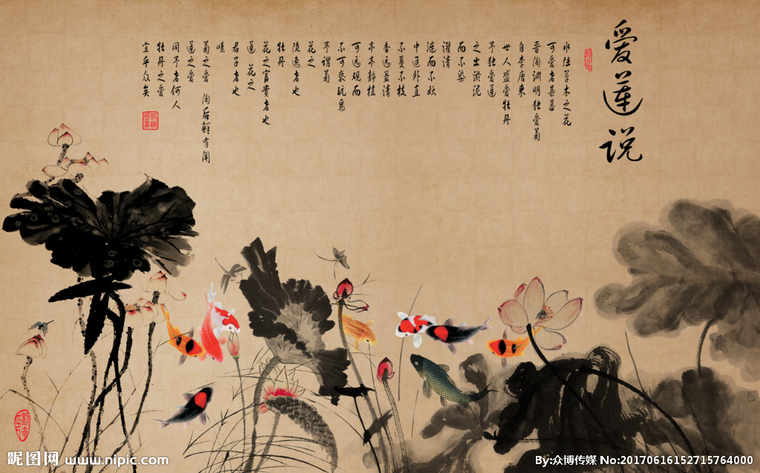 爱莲说
水陆草木之花
可爱者甚蕃
晋陶渊明独爱菊
自李唐来
世人盛爱牡丹
予独爱莲
之出淤泥
而不染
濯清
涟而不妖
中通外直
不蔓不枝
香远益清
亭亭静植
可远观而
不可亵玩焉
予谓菊
花之
隐逸者也
牡丹
花之富贵者也
莲 花之
君子者也
噫
菊之爱 陶后鲜有闻
莲之爱
同予者何人
牡丹之爱
宜乎众矣
昵图网 www.nipic.com
By:众博传媒 No:20170616152715764000